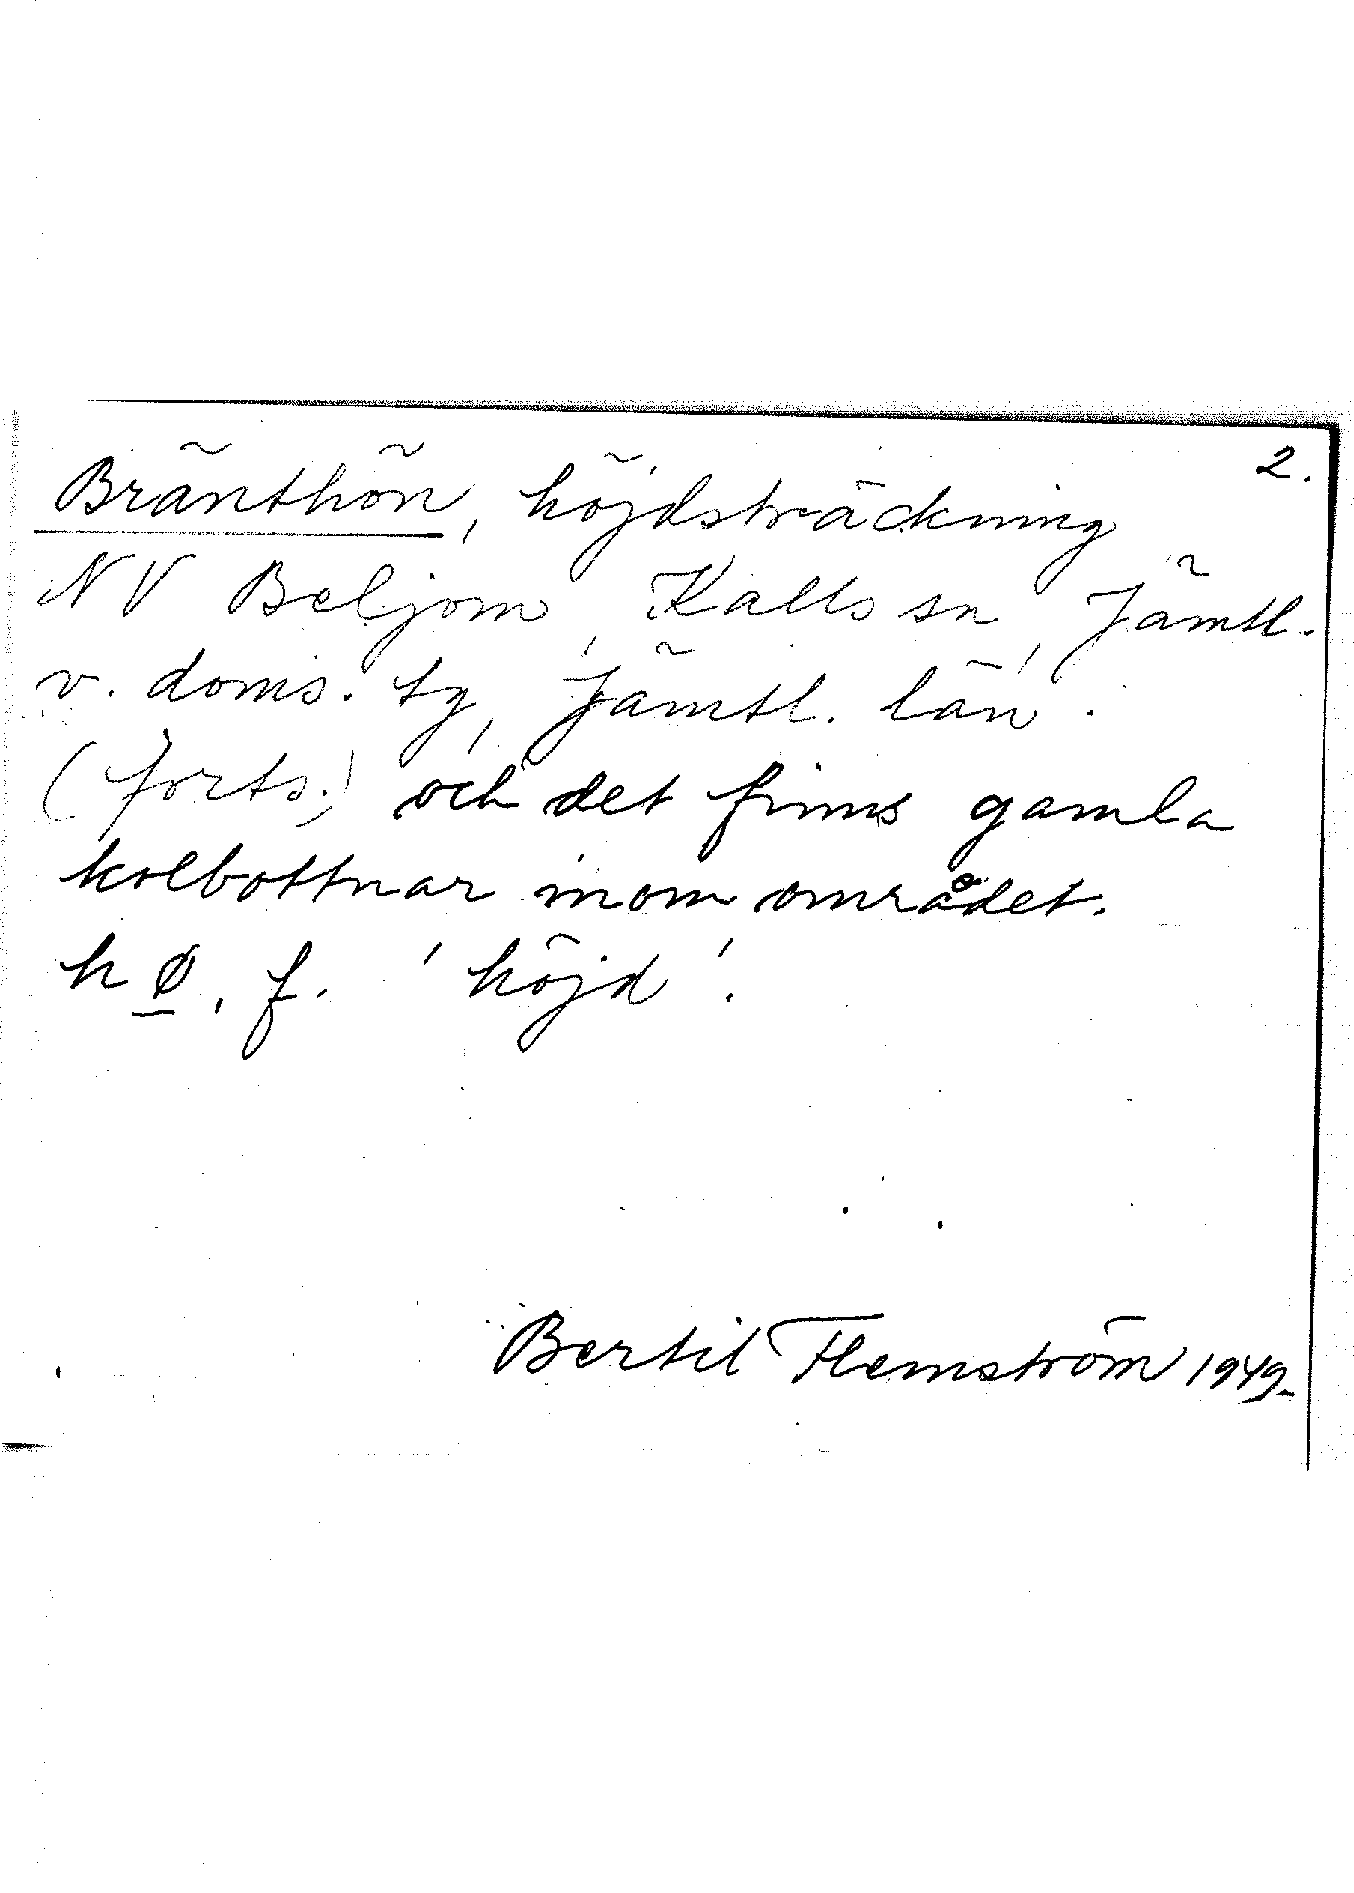 2.
Bränthön, höjdsträckning
NV Beljom, Kalls sn, Jämtl.
v. doms. tg, Jämtl. län.
(forts.) och det finns gamla
kolbottnar inom området.
hø, f. 'höjd'.
Bertil Flemström 1949.